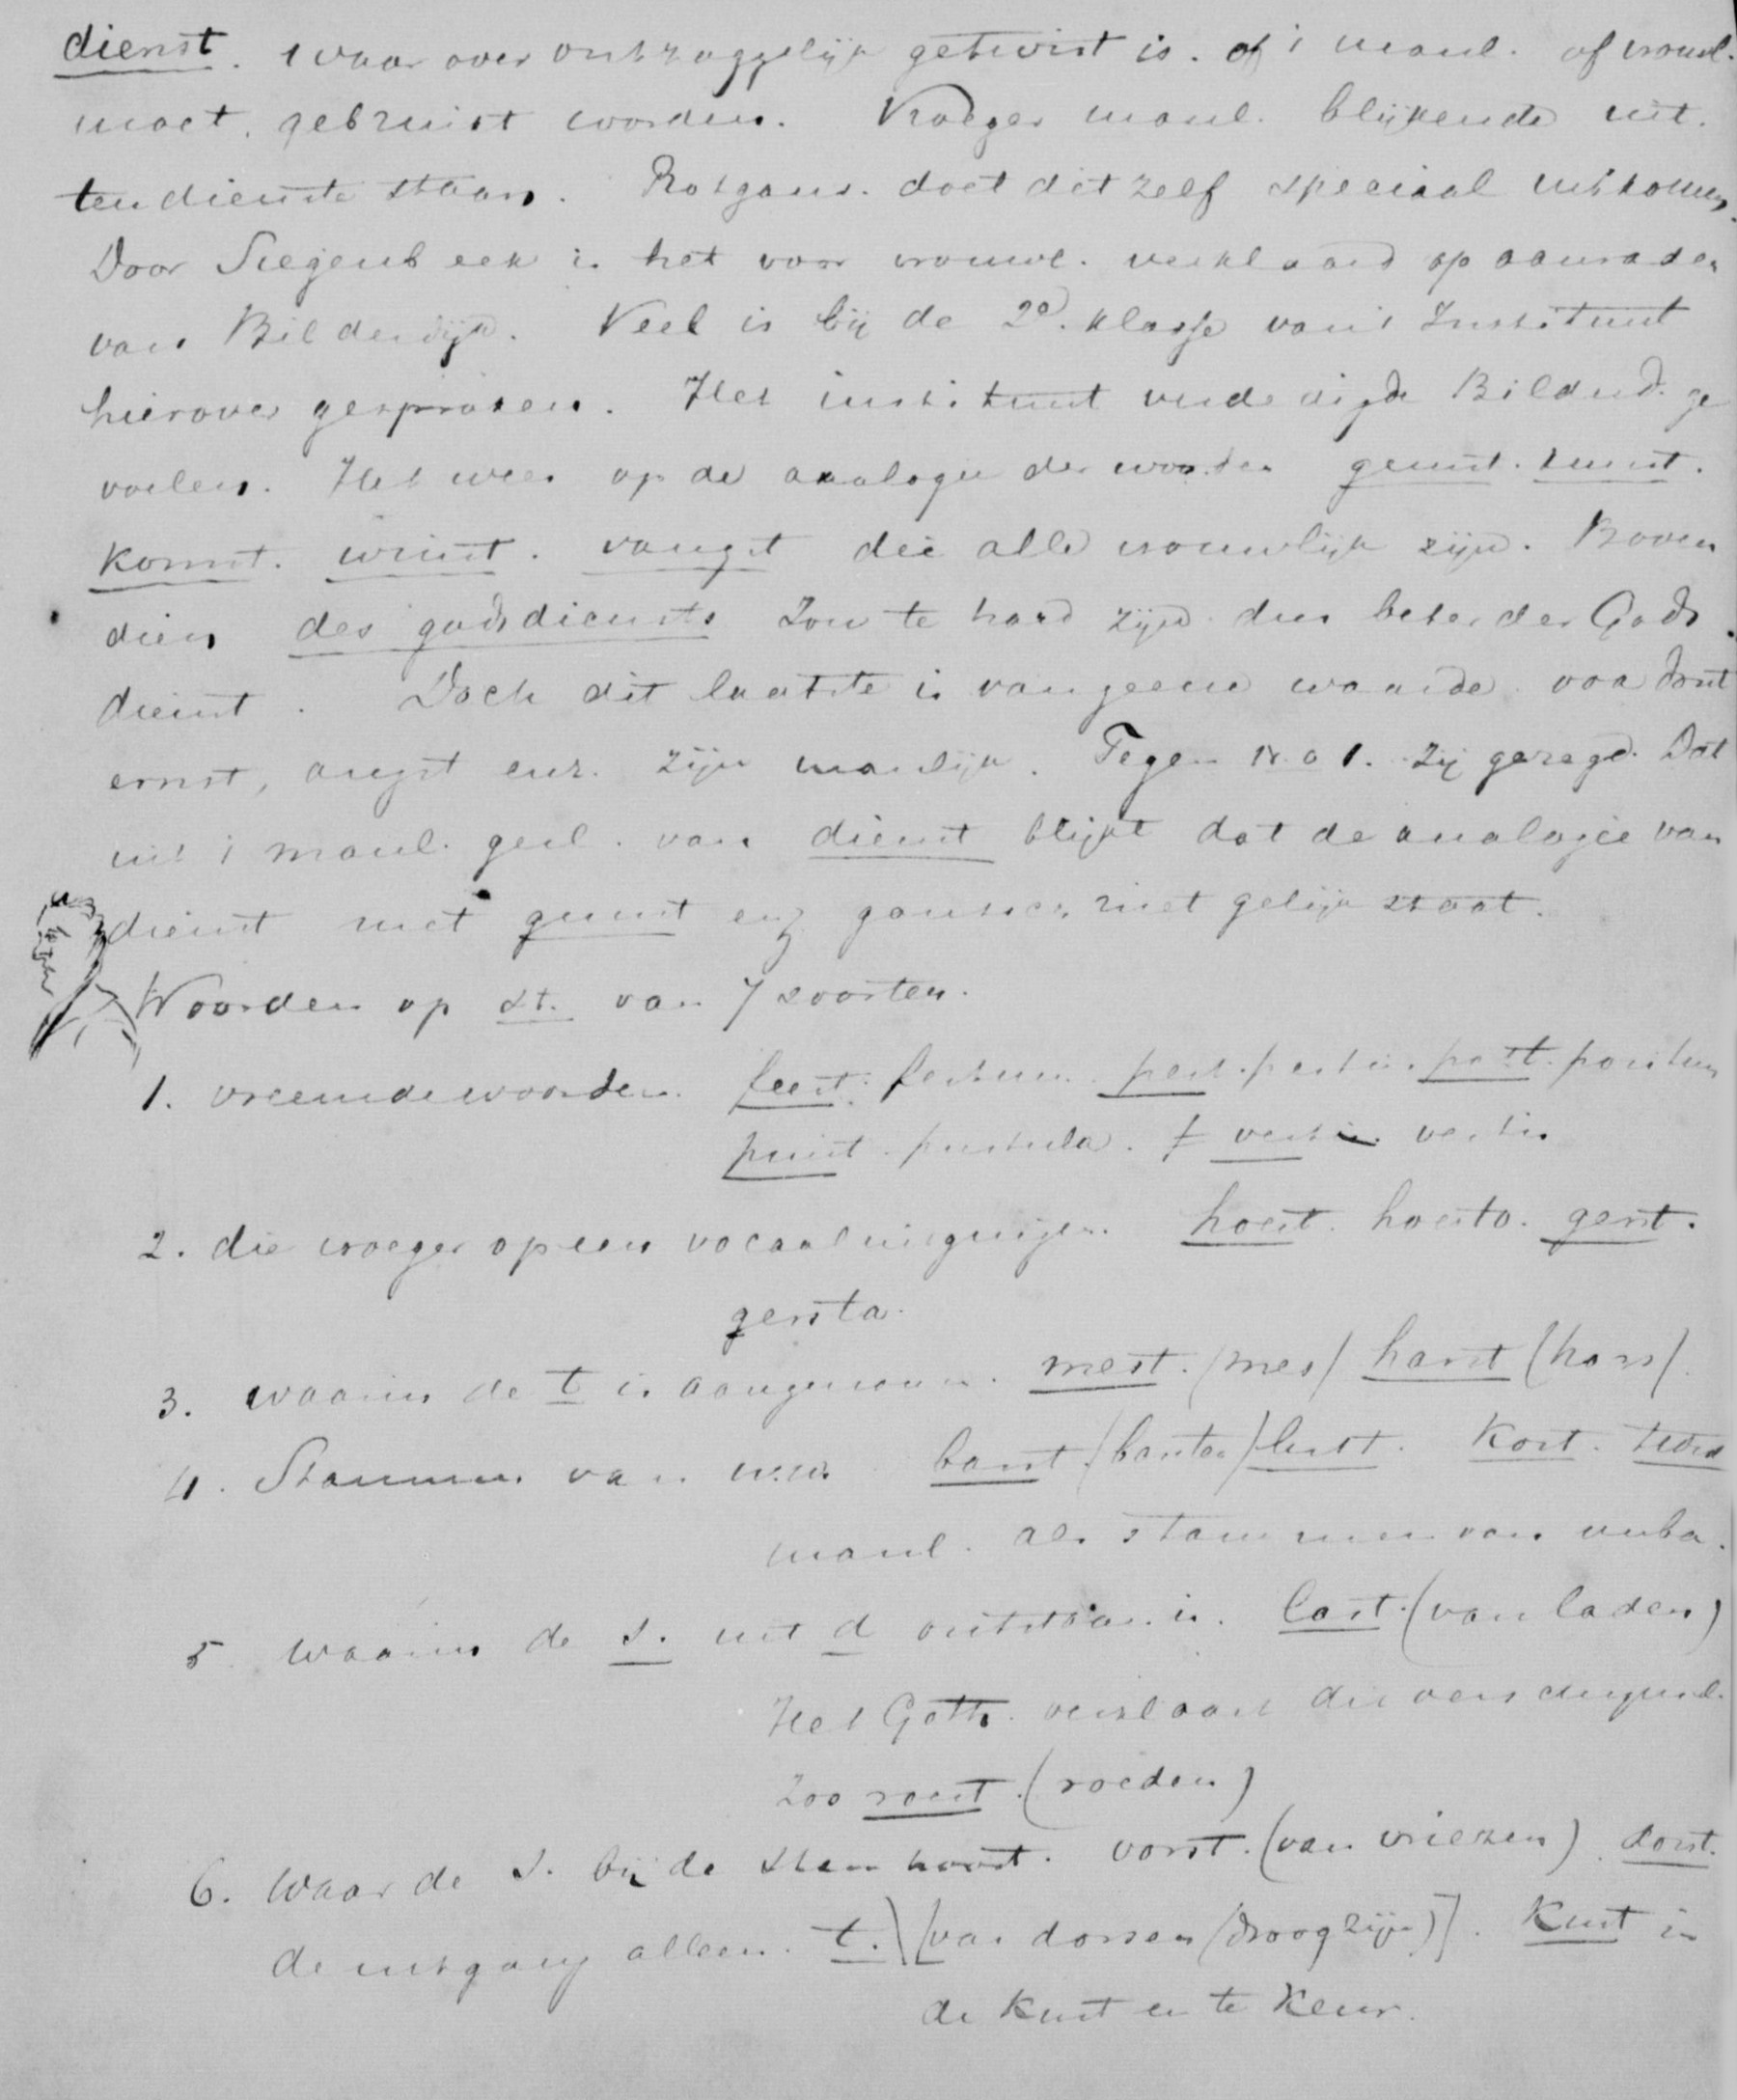 dienst. waar over ontzaggelijk getwist is. of 't manl. of vrouwl.
moet gebruikt worden. Vroeger manl. blijkende uit.
ten dienste staan. Rotgans. doet dit zelf speciaal uitkomen.
Door Siegenbeek is het voor vrouwl. verklaard op aanraden
van Bilderdijk. Veel is bij de 2e. klasse van 't Instituut
hierover gesproken. Het instituut verdedigde Bilderd. ge
voelen. Het wees op de analogie der woorden gunst. kunst.
komst. winst. vangst die alle vrouwlijk zijn. Boven
dien des godsdiensts zou te hard zijn dus beter der Gods
dienst. Doch dit laatste is van geene waarde. voor dorst
ernst, angst enz. zijn manlijk. Tegen No 1. zij gezegd. Dat
uit 't manl. gesl. van dienst blijkt dat de analogie van
dienst met gunst enz. niet gelijk staat.
Woorden op st. van 7 soorten.
1. vreemde woorden. feest. festum. pest. pestis. post. positum
puist. pustula. vest. vestis
2. die vroeger op een vocaal uitgingen. hoest. hoesto. gerst.
gersta.
3. waarin de t is aangenomen. mest. (mes) harst (hars).
4. Stammen van w.w. barst. (barsten) lust. Kost. twist
manl. als stammen van verba.
5. waarin de s. uit d ontstaan is. last. (van laden)
Het Goth. verklaart dit verschijnsel.
Zoo roest. (roeden)
6. Waar de s. bij de stam hoort. vorst. (van vriezen). dorst.
de uitgang alleen. t. [van dorsen (droog zijn)]. Kust in
de Kust en te Keur.